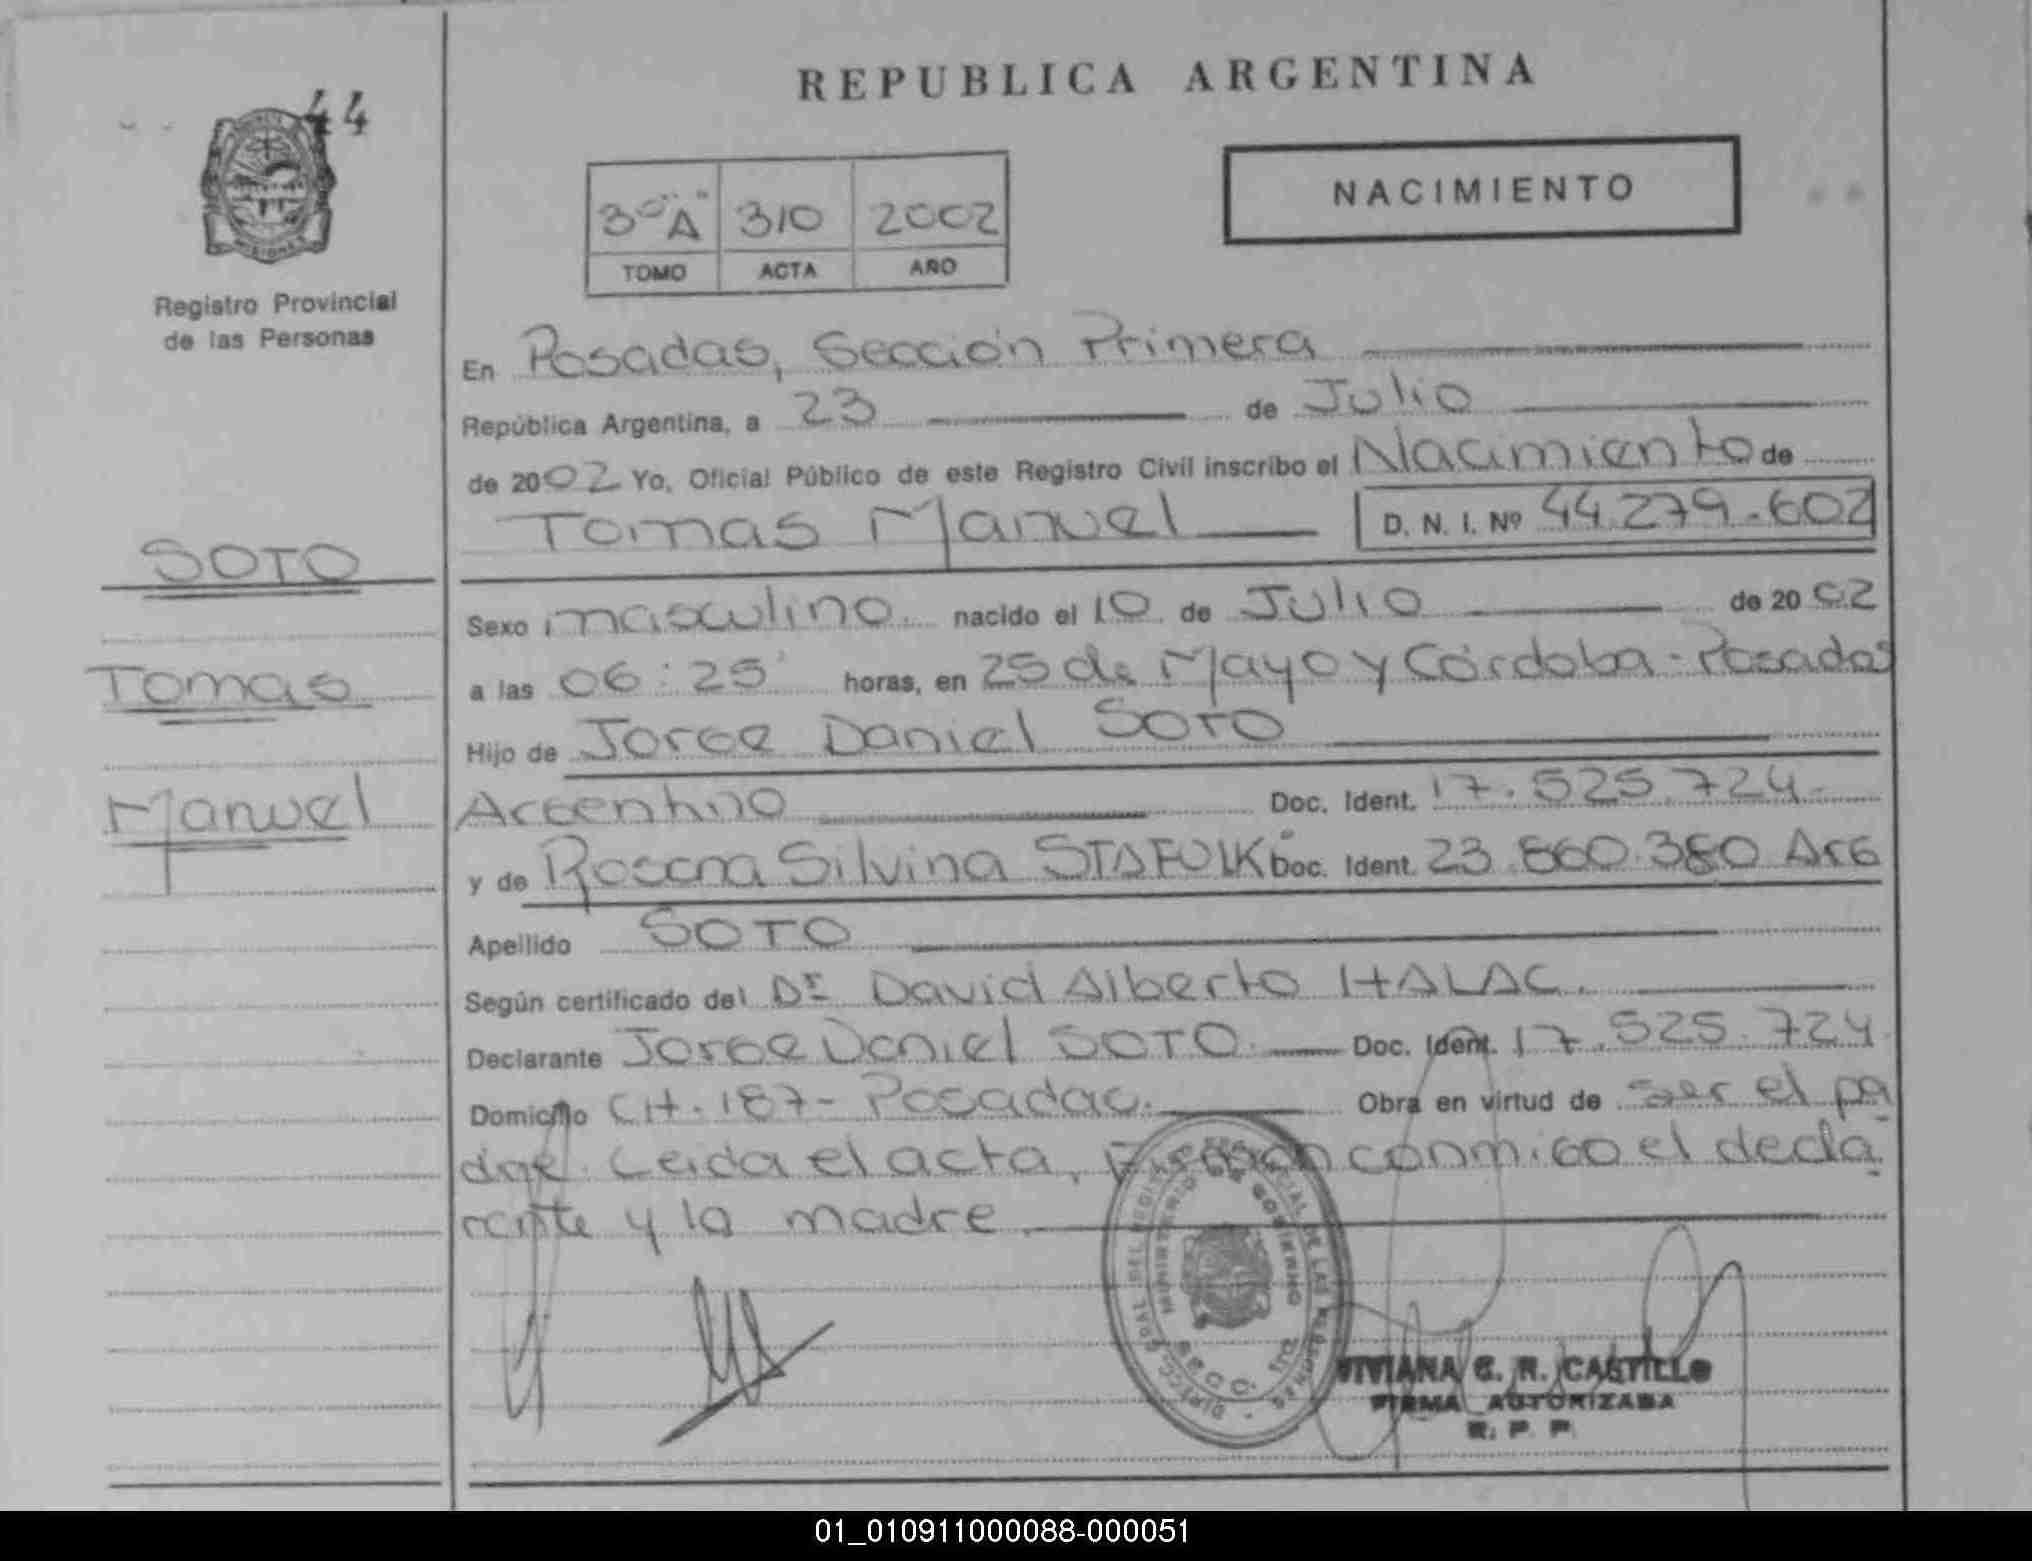 44
MISIONES
Registro Provincial
de las Personas
SOTO
Tomas
Manuel
REPUBLICA ARGENTINA
NACIMIENTO
3º"A" 310 2002
TOMO ACTA AÑO
En Posadas, Sección Primera
República Argentina, a 23 de Julio
de 2002 Yo, Oficial Público de este Registro Civil inscribo el Nacimiento de
Tomas Manuel D. N. I. Nº 44.279.602
Sexo masculino nacido el 10 de Julio de 2002
a las 06:25 horas, en 25 de Mayo y Córdoba - Posadas
Hijo de Jorge Daniel SOTO
Argentino Doc. Ident. 17.525.724.-
y de Rosana Silvina Doc. Ident. 23.860.380 Arg
Apellido SOTO
Según certificado del Dr David Alberto HALAC.
Declarante Jorge Daniel SOTO. Doc. Ident. 17.525.724
Domicilio CH. 187 - Posadas. Obra en virtud de ser el pa
dre. Leida el acta, Firman conmigo el decla
rante y la madre.
MINISTERIO DE GOBIERNO
VIVIANA G. R. CASTILLO
FIRMA AUTORIZADA
R. P. P.
01_010911000088-000051